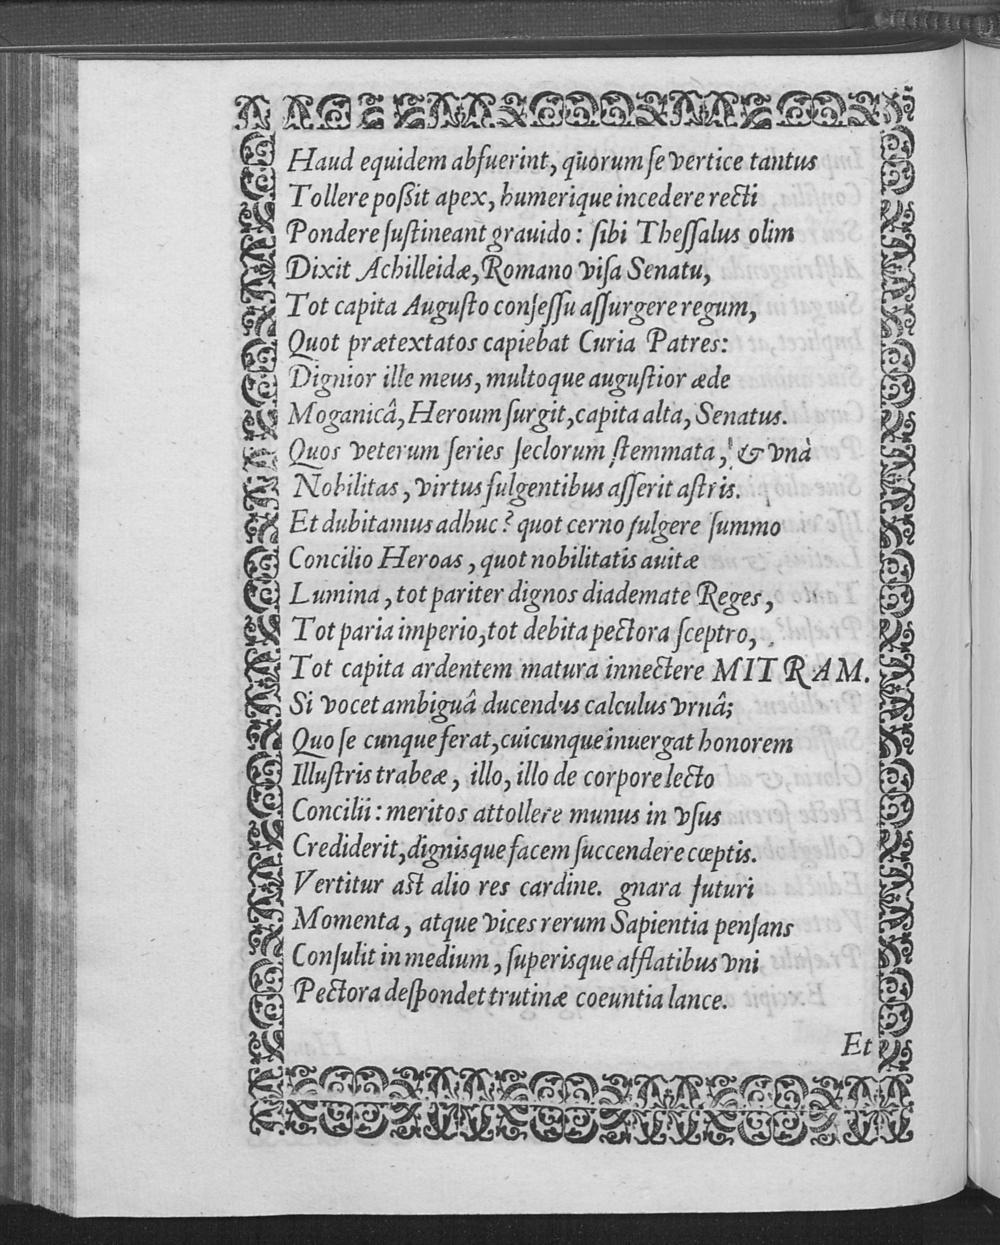 Haud equidem abfuerint, quorum ſe vertice tantus
Tollere poßit apex, humerique incedere recti
Pondere ſuſtineant grauido: ſibi Theſſalus olim
Dixit Achilleidæ, Romano viſa Senatu,
Tot capita Auguſto conſeſſu aſſurgere regum,
Quot prætextatos capiebat Curia Patres:
Dignior ille meus, multoque auguſtior æde
Moganicâ, Heroum ſurgit, capita alta, Senatus.
Quos veterum ſeries ſeclorum ſtemmata, & vnà
Nobilitas, virtus fulgentibus aſſerit aſtris.
Et dubitamus adhuc? quot cerno fulgere ſummo
Concilio Heroas, quot nobilitatis auitæ
Lumina, tot pariter dignos diademate Reges,
Tot paria imperio, tot debita pectora ſceptro,
Tot capita ardentem matura innectere MITRAM.
Si vocet ambiguâ ducendus calculus vrnâ;
Quo ſe cunque ferat, cuicunque inuergat honorem
Illuſtris trabeæ, illo, illo de corpore lecto
Concilii: meritos attollere munus in vſus
Crediderit, dignisque facem ſuccendere cœptis.
Vertitur aſt alio res cardine. gnara futuri
Momenta, atque vices rerum Sapientia penſans
Conſulit in medium, ſuperisque afflatibus vni
Pectora deſpondet trutinæ coeuntia lance.
Et